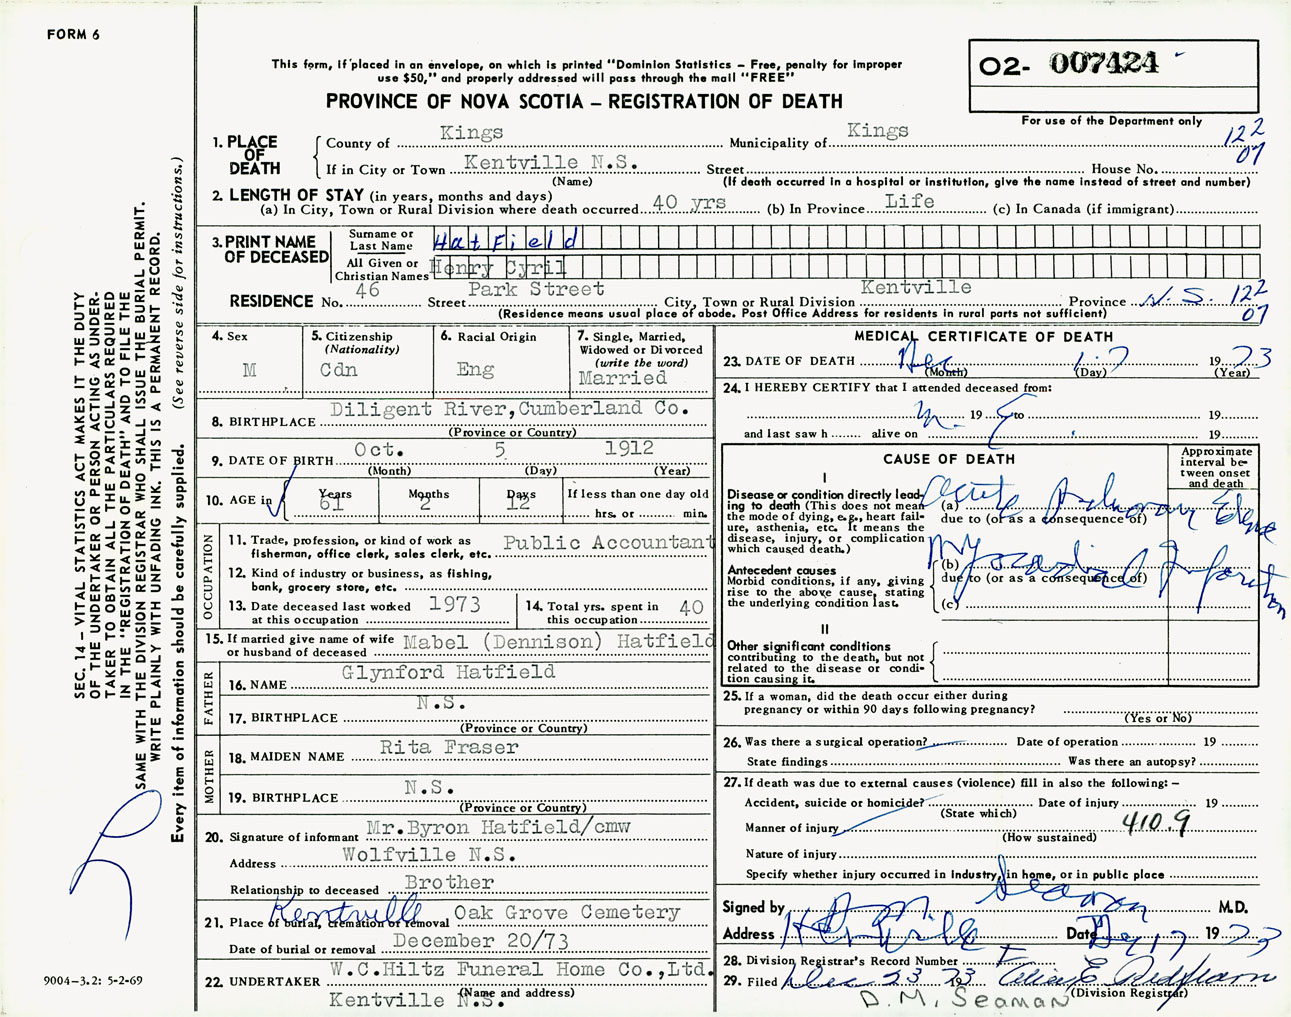 FORM 6
This form, if placed in an envelope, on which is printed "Dominion Statistics – Free, penalty for improper
use $50," and properly addressed will pass through the mail "FREE"
PROVINCE OF NOVA SCOTIA – REGISTRATION OF DEATH
O2- 007424
For use of the Department only
122
07
1. PLACE OF DEATH
County of Kings Municipality of Kings
If in City or Town Kentville N.S. Street House No.
(Name) (If death occurred in a hospital or institution, give the name instead of street and number)
2. LENGTH OF STAY (in years, months and days)
(a) In City, Town or Rural Division where death occurred 40 yrs (b) In Province Life (c) In Canada (if immigrant)
3. PRINT NAME OF DECEASED
Surname or Last Name Hatfield
All Given or Christian Names Henry Cyril
RESIDENCE No. 46 Street Park Street City, Town or Rural Division Kentville Province N.S. 122
07
(Residence means usual place of abode. Post Office Address for residents in rural parts not sufficient)
4. Sex
M
5. Citizenship
(Nationality)
Cdn
6. Racial Origin
Eng
7. Single, Married,
Widowed or Divorced
(write the word)
Married
8. BIRTHPLACE Diligent River,Cumberland Co.
(Province or Country)
9. DATE OF BIRTH Oct. 5 1912
(Month) (Day) (Year)
10. AGE in Years Months Days If less than one day old
61 2 12 hrs. or min.
OCCUPATION
11. Trade, profession, or kind of work as
fisherman, office clerk, sales clerk, etc. Public Accountant
12. Kind of industry or business, as fishing,
bank, grocery store, etc.
13. Date deceased last worked
at this occupation 1973
14. Total yrs. spent in
this occupation 40
15. If married give name of wife
or husband of deceased Mabel (Dennison) Hatfield
FATHER
16. NAME Glynford Hatfield
17. BIRTHPLACE N.S.
(Province or Country)
MOTHER
18. MAIDEN NAME Rita Fraser
19. BIRTHPLACE N.S.
(Province or Country)
20. Signature of informant Mr.Byron Hatfield/cmw
Address Wolfville N.S.
Relationship to deceased Brother
21. Place of burial, cremation or removal Kentville Oak Grove Cemetery
Date of burial or removal December 20/73
22. UNDERTAKER W.C.Hiltz Funeral Home Co.,Ltd.
(Name and address)
Kentville N.S.
MEDICAL CERTIFICATE OF DEATH
23. DATE OF DEATH Dec 17 1973
(Month) (Day) (Year)
24. I HEREBY CERTIFY that I attended deceased from:
M. E 19 to 19
and last saw h alive on 19
CAUSE OF DEATH
Approximate
interval be-
tween onset
and death
I
Disease or condition directly lead-
ing to death (This does not mean
the mode of dying, e.g., heart fail-
ure, asthenia, etc. It means the
disease, injury, or complication
which caused death.)
(a) Acute Pulmonary Edema
due to (or as a consequence of)
Antecedent causes
Morbid conditions, if any, giving
rise to the above cause, stating
the underlying condition last.
(b) Myocardial Infarction
due to (or as a consequence of)
(c)
II
Other significant conditions
contributing to the death, but not
related to the disease or condi-
tion causing it.
25. If a woman, did the death occur either during
pregnancy or within 90 days following pregnancy?
(Yes or No)
26. Was there a surgical operation? Date of operation 19
State findings Was there an autopsy?
27. If death was due to external causes (violence) fill in also the following: –
Accident, suicide or homicide? Date of injury 19
(State which)
Manner of injury 410.9
(How sustained)
Nature of injury
Specify whether injury occurred in Industry, in home, or in public place
Signed by Seaman M.D.
Address Kentville Date Dec 17 1973
28. Division Registrar's Record Number
29. Filed Dec 23 1973
(Division Registrar)
D. M. SEAMAN
SEC. 14 – VITAL STATISTICS ACT MAKES IT THE DUTY
OF THE UNDERTAKER OR PERSON ACTING AS UNDER-
TAKER TO OBTAIN ALL THE PARTICULARS REQUIRED
IN THE "REGISTRATION OF DEATH" AND TO FILE THE
SAME WITH THE DIVISION REGISTRAR WHO SHALL ISSUE THE BURIAL PERMIT.
WRITE PLAINLY WITH UNFADING INK. THIS IS A PERMANENT RECORD.
Every item of information should be carefully supplied. (See reverse side for instructions.)
9004–3.2: 5-2-69